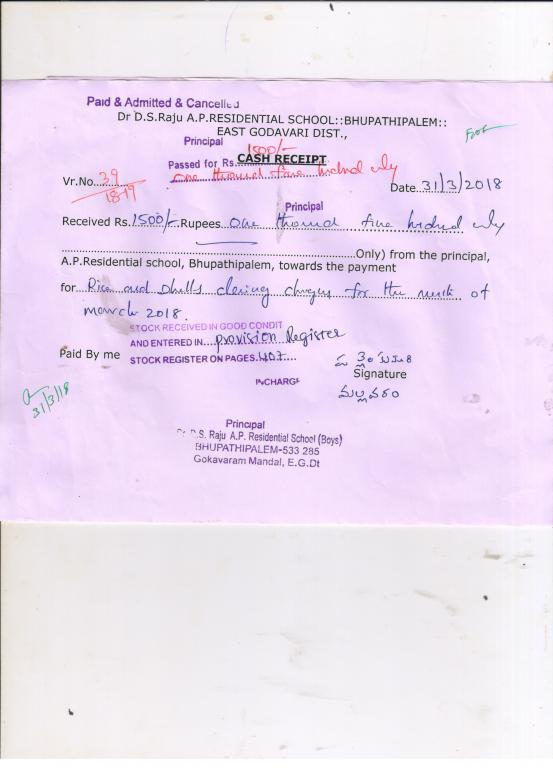 Paid & Admitted & Cancelled
Dr D.S.Raju A.P.RESIDENTIAL SCHOOL::BHUPATHIPALEM::
EAST GODAVARI DIST.,
Principal
1500/-
CASH RECEIPT
Passed for Rs. one thousand five hundred only
Vr.No. 39
1879
Date 31/3/2018
Principal
Received Rs. 1500/- Rupees one thousand five hundred only
Only) from the principal,
A.P.Residential school, Bhupathipalem, towards the payment
for Rice and Dhalls clening charges for the month of
march 2018.
STOCK RECEIVED IN GOOD CONDIT
AND ENTERED IN provision Register
Paid By me STOCK REGISTER ON PAGES 407
Signature
INCHARGE
మల్లవరం
31/3/18
Principal
D.S. Raju A.P. Residential School (Boys)
BHUPATHIPALEM-533 285
Gokavaram Mandal, E.G.Dt